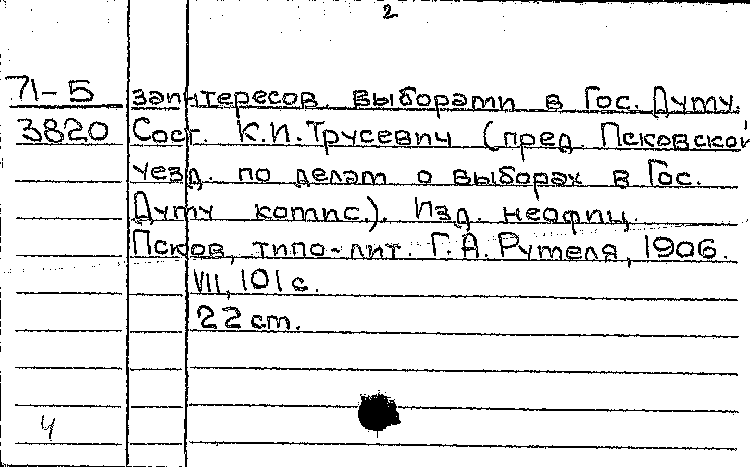 2
71-5 заинтересов. выборами в Гос. Думу.
3820 Сост. К.И. Трусевич (пред. Псковской
уезд. по делам о выборах в Гос.
Думу комис.). Изд. неофиц.
Псков, типо-лит. Г.А. Рутеля, 1906.
VII, 101 с.
22 см.
4